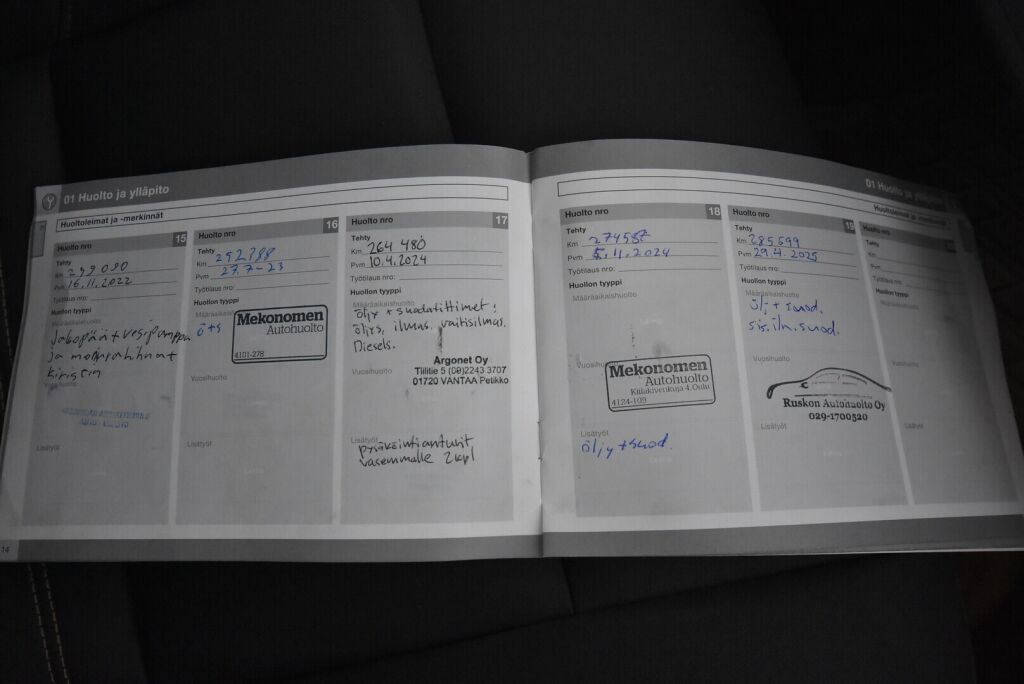 01 Huolto ja ylläpito
Huoltoleimat ja -merkinnät
Huolto nro 15
Tehty
Km 249 090
Pvm 16.11.2022
Työtilaus nro:
Huollon tyyppi
Määräaikaishuolto
Jakopää + vesipumppu
ja moniurahihnat
kiristin
Vuosihuolto
Lisätyöt
Huolto nro 16
Tehty
Km 252788
Pvm 27.7-23
Työtilaus nro:
Huollon tyyppi
Määräaikaishuolto
ö+s
Mekonomen
Autohuolto
4101-278
Vuosihuolto
Lisätyöt
Huolto nro 17
Tehty
Km 264 480
Pvm 10.4.2024
Työtilaus nro:
Huollon tyyppi
Määräaikaishuolto
öljy + suodattimet:
öljys, ilmas.
Diesels.
Vuosihuolto
Argonet Oy
Tiilitie 5 (09)2243 3707
01720 VANTAA Petikko
Lisätyöt
pysäköintianturit
vasemmalle 2kpl
14
01 Huolto ja ylläpito
Huoltoleimat ja -merkinnät
Huolto nro 18
Tehty
Km 274587
Pvm 5.11.2024
Työtilaus nro:
Huollon tyyppi
Määräaikaishuolto
Vuosihuolto
Mekonomen
Autohuolto
Kiilakivenkuja 4, Oulu
4124-109
Lisätyöt
öljy + suod.
Huolto nro 19
Tehty
Km 285699
Pvm 29.4.2025
Työtilaus nro:
Huollon tyyppi
Määräaikaishuolto
öljy + suod.
sis.ilm.suod.
Vuosihuolto
Ruskon Autohuolto Oy
029-1700520
Lisätyöt
Huolto nro
Tehty
Km
Pvm
Työtilaus nro:
Huollon tyyppi
Määräaikaishuolto
Vuosihuolto
Lisätyöt